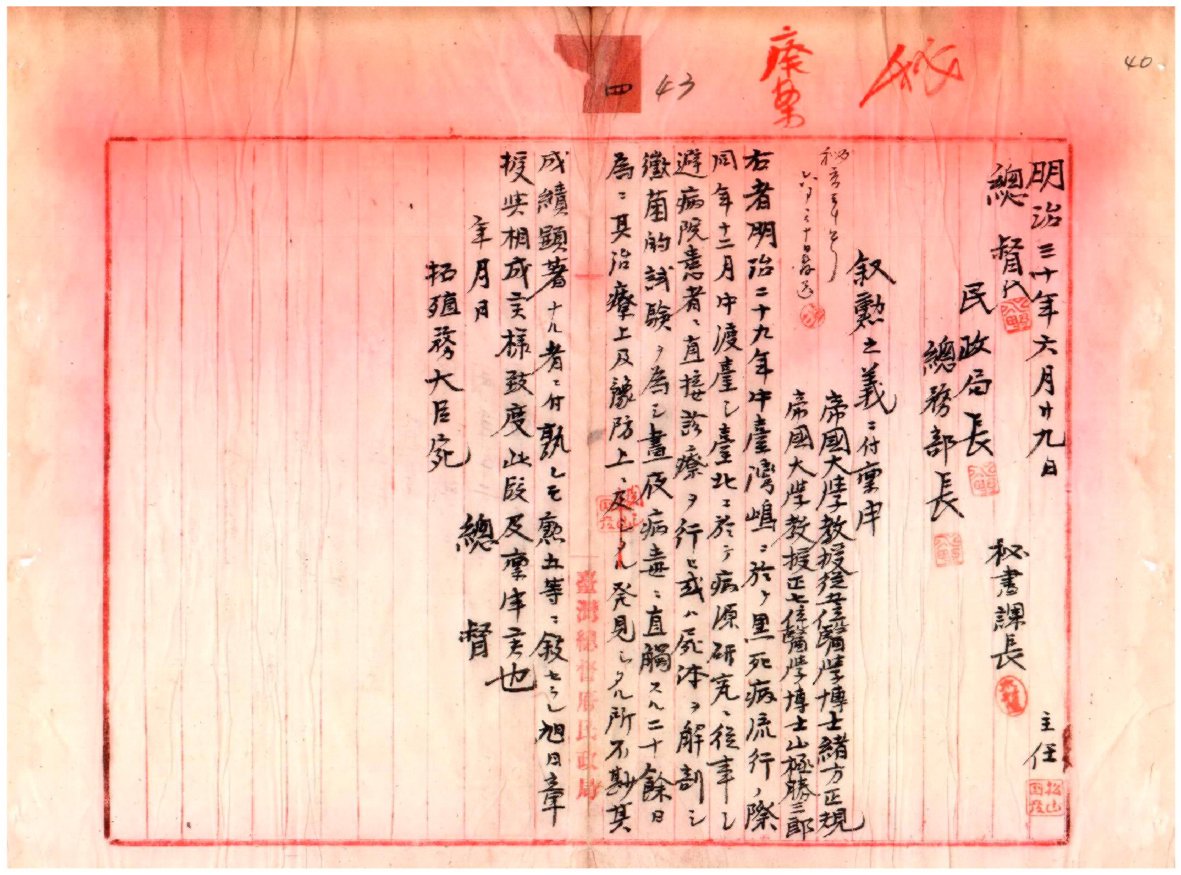 40
秘
廃案
四
43
明治三十年六月廿九日
主任
總督
秘書課長
民政局長
總務部長
叙勲之義ニ付稟申
帝國大學教授從五位醫學博士緒方正規
帝國大學教授正七位醫學博士山極勝三郎
右者明治二十九年中臺灣嶋ニ於ケル黒死病流行ノ際
同年十二月中渡臺シ臺北ニ於テ病源研究ニ從事シ
避病院患者ニ直接診療ヲ行ヒ或ハ死体ヲ解剖シ
黴菌的試驗ヲ為シ晝夜病毒ニ直觸スル二十餘日
為ニ其治療上及豫防上ニ
発見シタル所不尠其
成績顕著ナル者ニ付孰レモ勲五等ニ叙セラレ旭日章
授與相成候様致度此段及稟申候也
年月日
總督
拓殖務大臣宛
臺灣總督府民政局